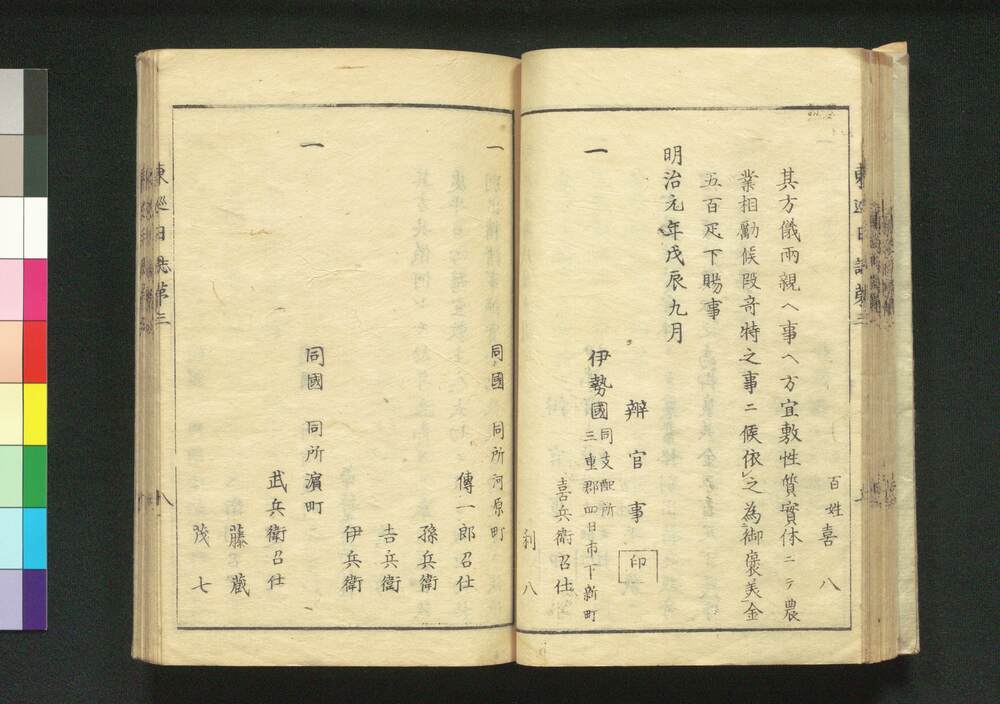 百姓喜八
其方儀兩親ヘ事ヘ方宜敷性質實体ニテ農
業相勵候段竒特之事ニ候依之為御褒美金
五百疋下賜事
明治元年戊辰九月
辨官事 印
一 伊勢國同支配所三重郡四日市下新町
喜兵衛召仕
利八
一 同國 同所河原町
傳一郎召仕
孫兵衛
吉兵衛
伊兵衛
一 同國 同所濱町
武兵衛召仕
藤藏
茂七
東巡日誌第三
八